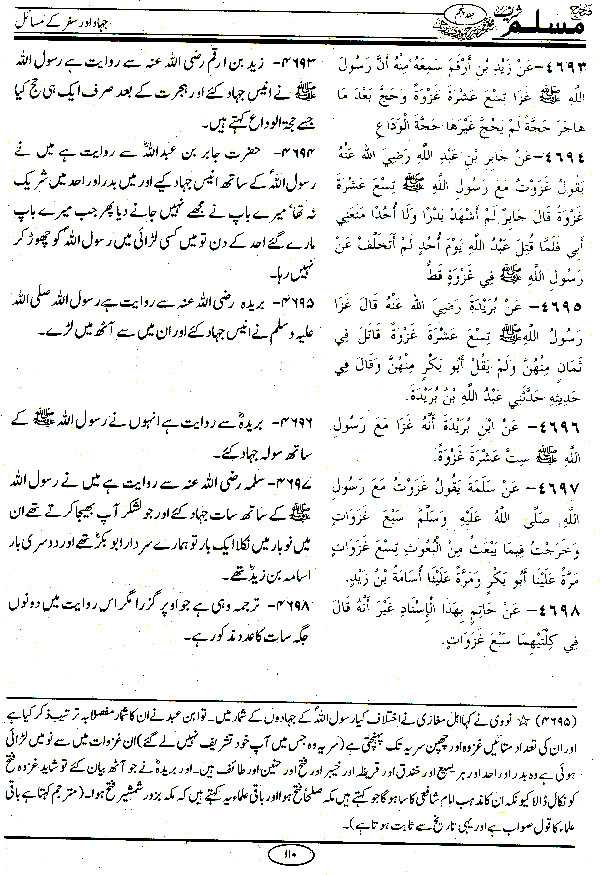 صحیح مسلم شریف
جہاد اور سفر کے مسائل
٤٦٩٣– عَنْ زَيْدِ بْنِ أَرْقَمَ سَمِعَهُ مِنْهُ أَنَّ رَسُولَ
اللهِ ﷺ غَزَا تِسْعَ عَشْرَةَ غَزْوَةً وَحَجَّ بَعْدَ مَا
هَاجَرَ حَجَّةً لَمْ يَحُجَّ غَيْرَهَا حَجَّةَ الْوَدَاعِ
٤٦٩٤– عَنْ جَابِرِ بْنِ عَبْدِ اللَّهِ رَضِيَ الله عَنْهُ
يَقُولُ غَزَوْتُ مَعَ رَسُولِ اللَّهِ ﷺ تِسْعَ عَشْرَةَ
غَزْوَةً قَالَ جَابِرٌ لَمْ أَشْهَدْ بَدْرًا وَلَا أُحُدًا مَنَعَنِي
أَبِي فَلَمَّا قُتِلَ عَبْدُ اللَّهِ يَوْمَ أُحُدٍ لَمْ أَتَخَلَّفْ عَنْ
رَسُولِ اللَّهِ ﷺ فِي غَزْوَةٍ قَطُّ
٤٦٩٥– عَنْ بُرَيْدَةَ رَضِيَ الله عَنْهُ قَالَ غَزَا
رَسُولُ اللهِ ﷺ تِسْعَ عَشْرَةَ غَزْوَةً قَاتَلَ فِي
ثَمَانٍ مِنْهُنَّ وَلَمْ يَقُلْ أَبُو بَكْرٍ مِنْهُنَّ وَقَالَ فِي
حَدِيثِهِ حَدَّثَنِي عَبْدُ اللَّهِ بْنُ بُرَيْدَةَ.
٤٦٩٦– عَنْ ابْنِ بُرَيْدَةَ أَنَّهُ غَزَا مَعَ رَسُولِ
اللَّهِ ﷺ سِتَّ عَشْرَةَ غَزْوَةً.
٤٦٩٧– عَنْ سَلَمَةَ يَقُولُ غَزَوْتُ مَعَ رَسُولِ
اللهِ صَلَّى اللهُ عَلَيْهِ وَسَلَّمَ سَبْعَ غَزَوَاتٍ
وَخَرَجْتُ فِيمَا يَبْعَثُ مِنْ الْبُعُوثِ تِسْعَ غَزَوَاتٍ
مَرَّةً عَلَيْنَا أَبُو بَكْرٍ وَمَرَّةً عَلَيْنَا أُسَامَةُ بْنُ زَيْدٍ.
٤٦٩٨– عَنْ حَاتِمٍ بِهَذَا الْإِسْنَادِ غَيْرَ أَنَّهُ قَالَ
فِي كِلْتَيْهِمَا سَبْعَ غَزَوَاتٍ.
۴۶۹۳– زید بن ارقم رضی اللہ عنہ سے روایت ہے رسول اللہ
ﷺ نے انیس جہاد کئے اور ہجرت کے بعد صرف ایک ہی حج کیا
جسے حجۃ الوداع کہتے ہیں۔
۴۶۹۴– حضرت جابر بن عبداللہؓ سے روایت ہے میں نے
رسول اللہؐ کے ساتھ انیس جہاد کیے اور میں بدر اور احد میں شریک
نہ تھا' میرے باپ نے مجھے نہیں جانے دیا پھر جب میرے باپ
مارے گئے احد کے دن تو میں کسی لڑائی میں رسول اللہؐ کو چھوڑ کر
نہیں رہا۔
۴۶۹۵– بریدہ رضی اللہ عنہ سے روایت ہے رسول اللہ صلی اللہ
علیہ وسلم نے انیس جہاد کئے اور ان میں سے آٹھ میں لڑے۔
۴۶۹۶– بریدہؓ سے روایت ہے انہوں نے رسول اللہ ﷺ کے
ساتھ سولہ جہاد کئے۔
۴۶۹۷– سلمہ رضی اللہ عنہ سے روایت ہے میں نے رسول اللہ
ﷺ کے ساتھ سات جہاد کئے اور جو لشکر آپ بھیجا کرتے تھے ان
میں نو بار میں نکلا ایک بار تو ہمارے سردار ابو بکرؓ تھے اور دوسری بار
اسامہ بن زیدؓ تھے۔
۴۶۹۸– ترجمہ وہی ہے جو اوپر گزرا مگر اس روایت میں دونوں
جگہ سات کا عدد مذکور ہے۔
(۴۶۹۵) ☆ نووی نے کہا اہل مغازی نے اختلاف کیا رسول اللہؐ کے جہادوں کے شمار میں۔ تو ابن عبد نے ان کا شمار مفصلا بہ ترتیب ذکر کیا ہے
اور ان کی تعداد ستائیس غزوہ اور چھپن سریہ تک پہنچتی ہے (سریہ وہ جس میں آپ خود تشریف نہیں لے گئے) ان غزوات میں سے نو میں لڑائی
ہوئی ہے وہ بدر اور احد اور مریسیع اور خندق اور قریظہ اور خیبر اور فتح اور حنین اور طائف ہیں۔ اور بریدہ نے جو آٹھ بیان کئے تو شاید غزوہ فتح
کو نکال ڈالا کیونکہ ان کا مذہب امام شافعی کا سا ہوگا جو کہتے ہیں مکہ صلحا فتح ہوا اور باقی علماء یہ کہتے ہیں کہ مکہ بزور شمشیر فتح ہوا۔ (مترجم کہتا ہے باقی
علماء کا قول صواب ہے اور یہی تاریخ سے ثابت ہوتا ہے)۔
۶۱۰